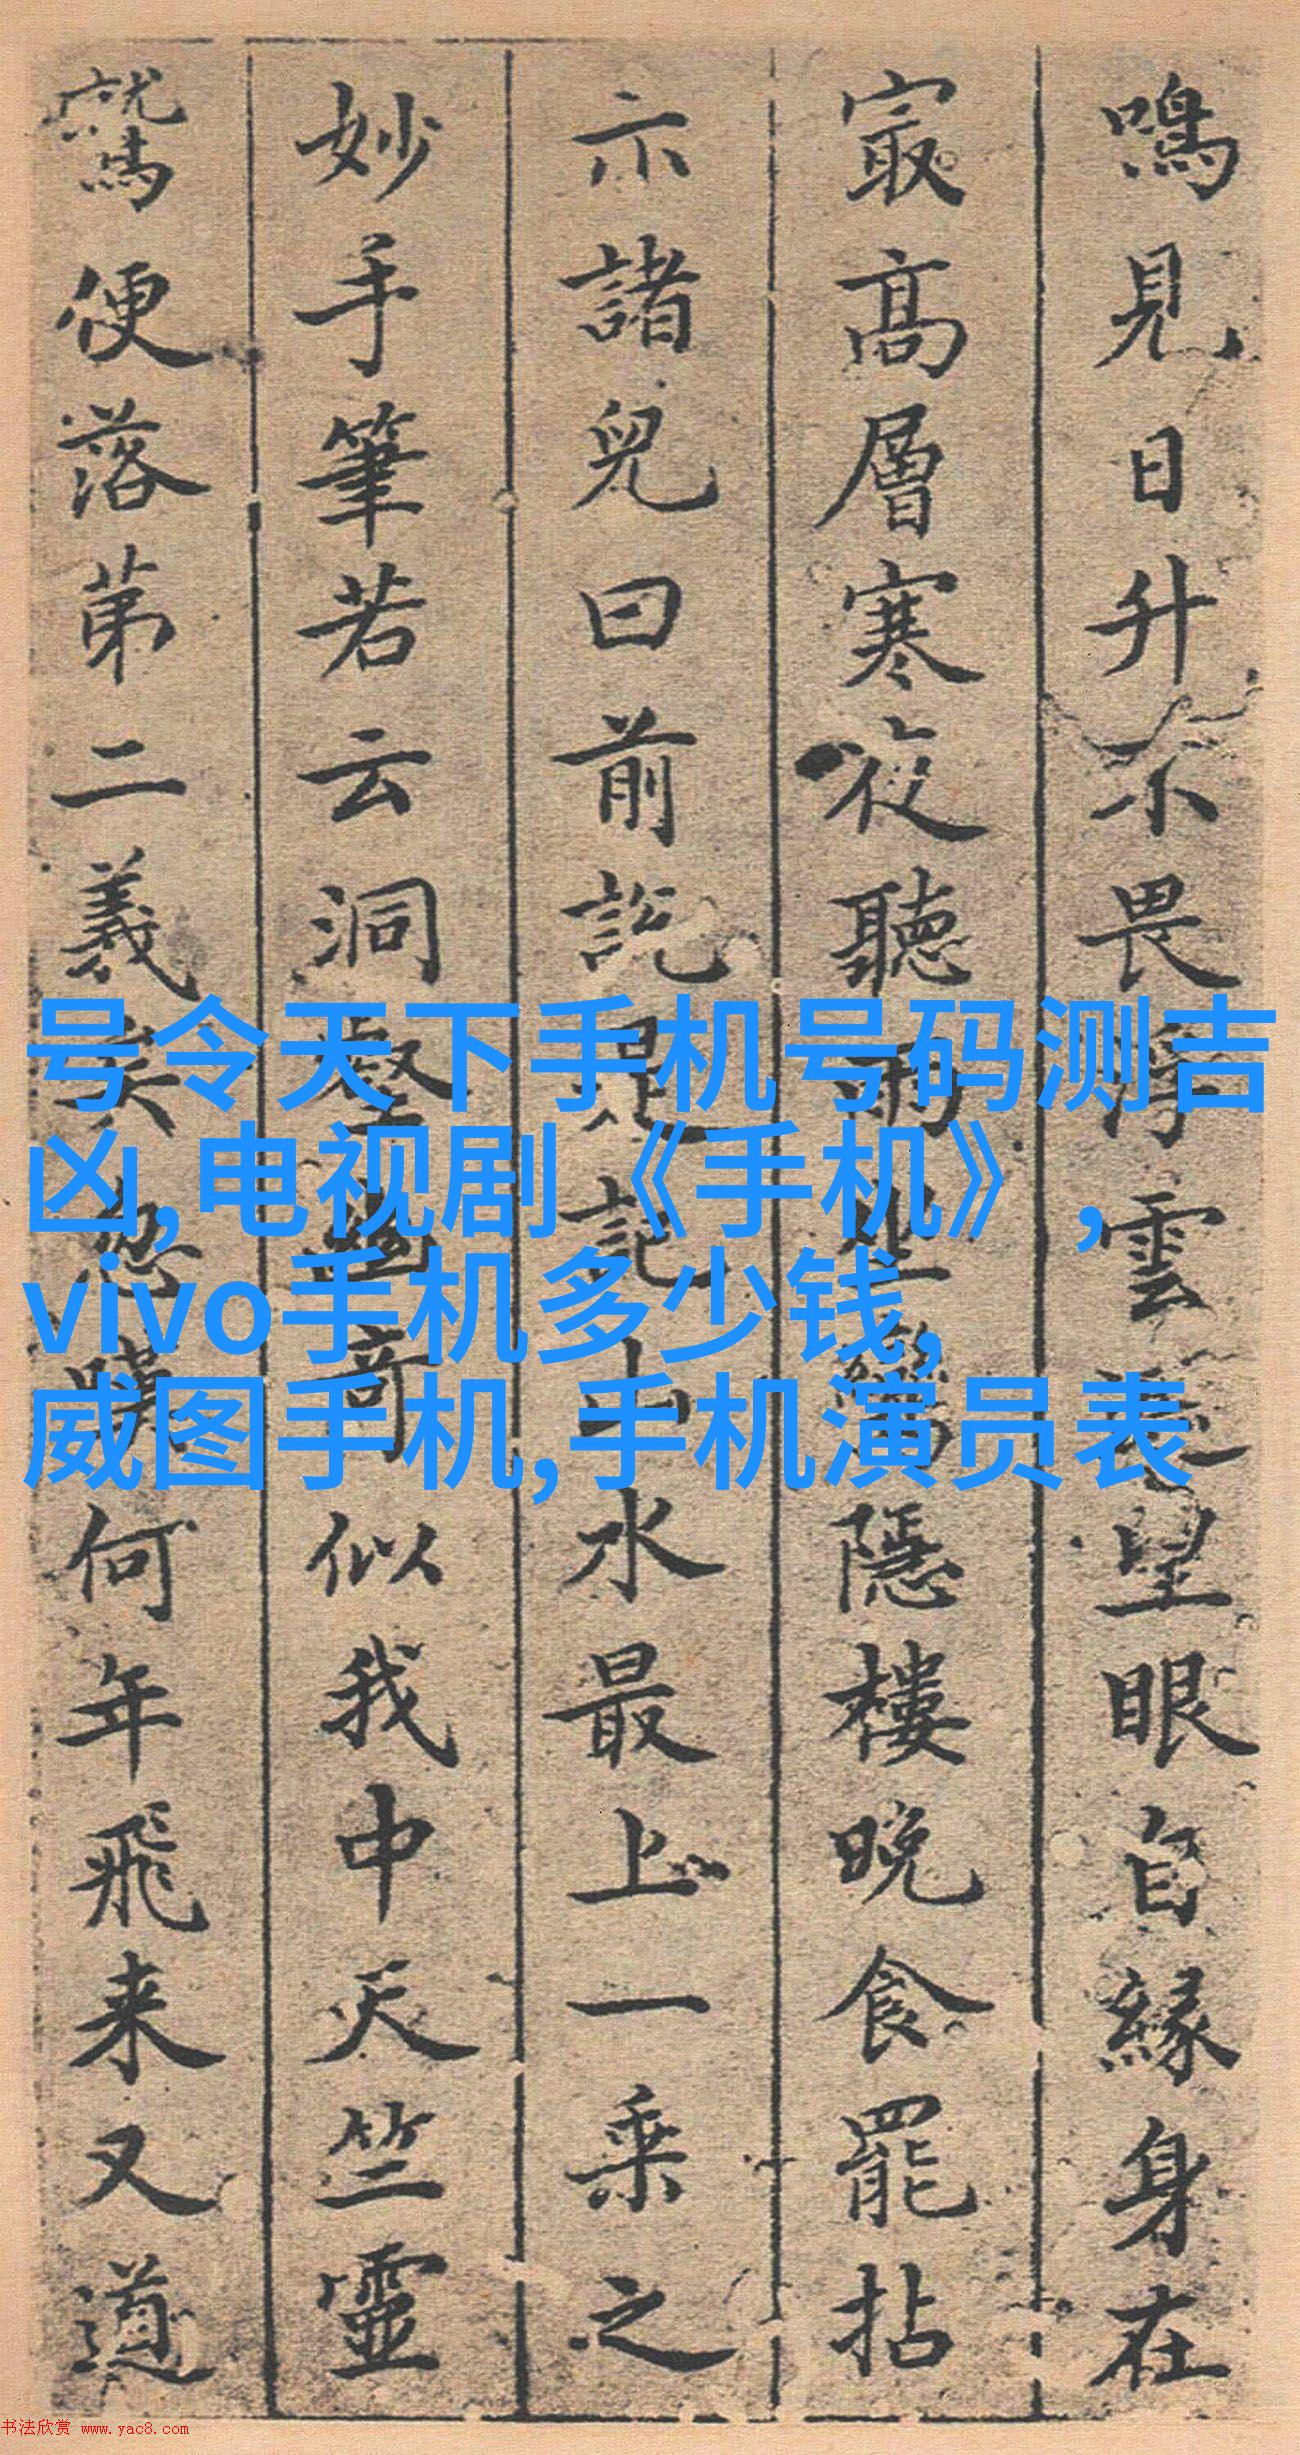 鳴見日升不畏浮雲遮望眼自緣身在
㝡高層寒夜聽雨隱樓晚食罷拈
示諸兒曰前説記山水最上一乘之
妙手筆若云洞壑奇似我中天竺靈
鷲便落第二義矣忽嘆何年飛来又道
号令天下手机号码测吉
凶,电视剧《手机》,
vivo手机多少钱,
威图手机,手机演员表
书法欣赏 www.yac8.com